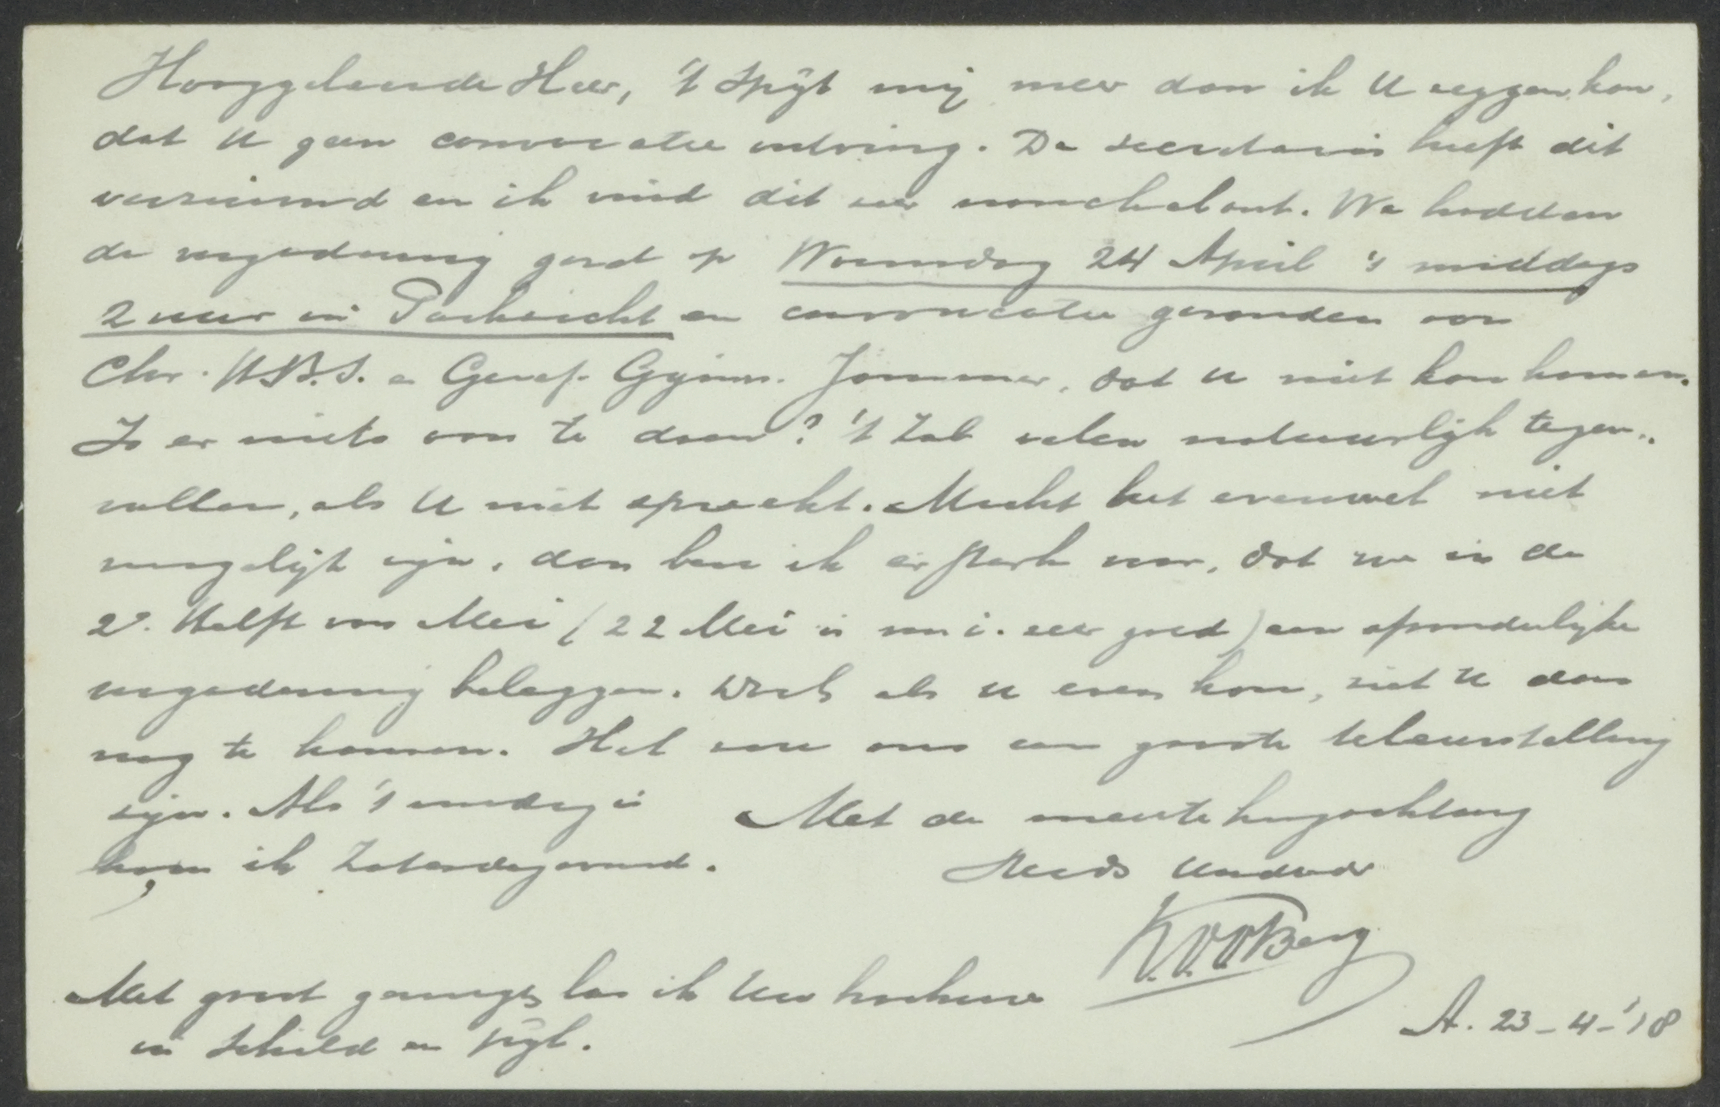 Hooggeleerde Heer, 't spijt mij meer dan ik U zeggen kan,
dat U geen convocatie ontving. De secretaris heeft dit
verzuimd en ik vind dit zeer nonchalant. We hadden
de vergadering gesteld op Woensdag 24 April 's middags
2 uur in Parkzicht en convocatie gezonden aan
Chr. H.B.S. en Geref. Gymn. Jammer, dat U niet kan komen.
Is er niets aan te doen? 't Zal velen natuurlijk tegen-
vallen, als U niet spreekt. Mocht het evenwel niet
mogelijk zijn, dan ben ik er sterk voor, dat we in de
2e Helft van Mei (22 Mei is m.i. zeer goed) een afzonderlijke
vergadering beleggen. Doch als U even kan, ziet U dan
nog te komen. Het zou ons een groote teleurstelling
zijn. Als 't noodig is
kom ik Zaterdagavond.
Met de meeste hoogachting
Steeds Uwdwdr
K. v.d. Berg
Met groot genoegen las ik Uw
in Schild en Pijl.
A. 23-4-'18